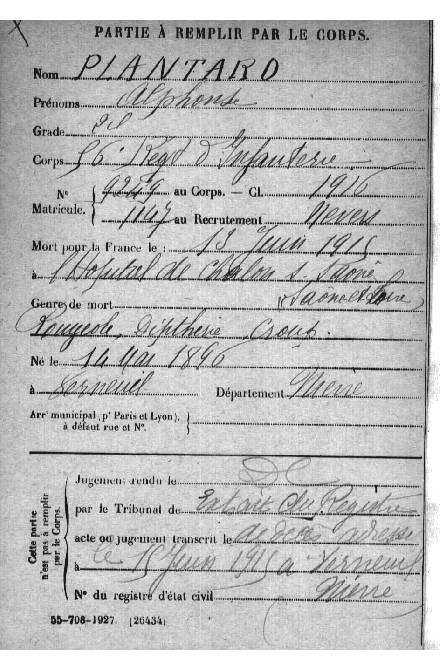 PARTIE À REMPLIR PAR LE CORPS.
Nom PLANTARD
Prénoms Alphonse
Grade
Corps 56e Régt d'Infanterie
No au Corps. — Cl. 1916
Matricule. 1147 au Recrutement Nevers
Mort pour la France le : 13 Juin 1915
à l'Hopital de Chalon s. Saône
Genre de mort (Saône et Loire)
Rougeole, Diphtherie Croup.
Né le 14 Mai 1896
à Verneuil Département Nièvre
Arrt municipal (pr Paris et Lyon),
à défaut rue et No.
Cette partie
n'est pas à remplir
par le Corps.
Jugement rendu le
par le Tribunal de Extrait du Registre
acte ou jugement transcrit le
le 15 Juin 1915
à à Verneuil
No du registre d'état civil Nièvre
55-708-1927. [26434]